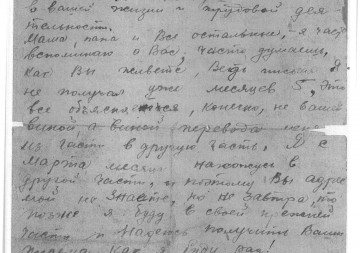 в вашей жизни и трудовой дея
тельности.
Мама, папа и все остальные, я часто
вспоминаю о Вас, часто думаешь,
как Вы живете, Ведь писем я
не получал уже месяцев 5, это
все объясняется, конечно, не вашей
виной, а виной перевода
из части в другую часть. Я с
марта месяца нахожусь в
другой части, и поэтому Вы адрес
мой не знаете, но не завтра, то
позже я буду в своей прежней
части и надеюсь получить Ваши
письма. Как я буду рад!